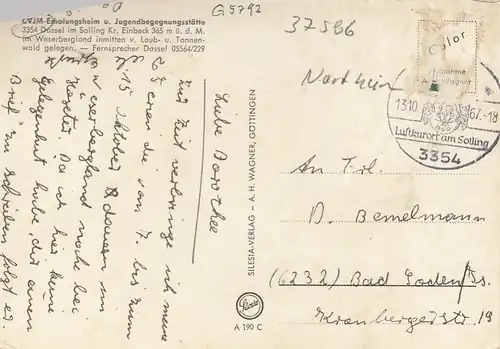 G5792
37586
CVJM-Erholungsheim u. Jugendbegegnungsstätte
3354 Dassel im Solling Kr. Einbeck 365 m ü. d. M.
im Weserbergland inmitten v. Laub- u. Tannen-
wald gelegen. — Fernsprecher Dassel 05564/229
Liebe Dorothee
Zur Zeit verbringe ich meine
Ferien die vom 7. bis zum
15 Oktober dauern im
Weserbergland nahe bei
Höxter. Da ich hier keine
Gelegenheit habe, dir einen
Brief zu schreiben folgt er
SILESIA-VERLAG – A. H. WAGNER, GÖTTINGEN
Silesia
A 190 C
Color
Northeim
13.10
67.-18
Luftkurort am Solling
3354
An Frl.
D. Bemelmann
(6232) Bad Soden/Ts.
Kronbergerstr 19